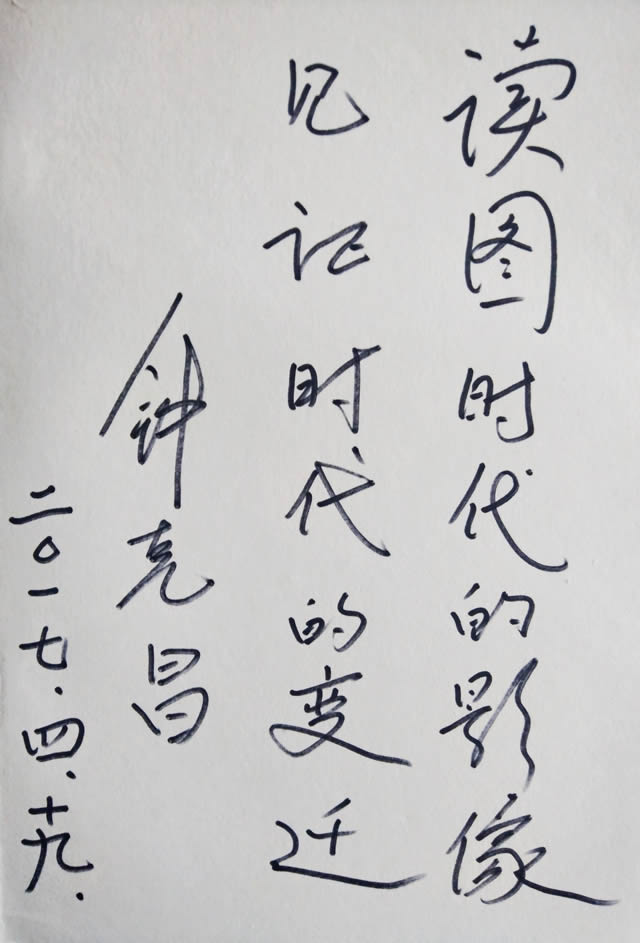 读图时代的影像
见证时代的变迁
钟克昌
二〇一七.四.十九.